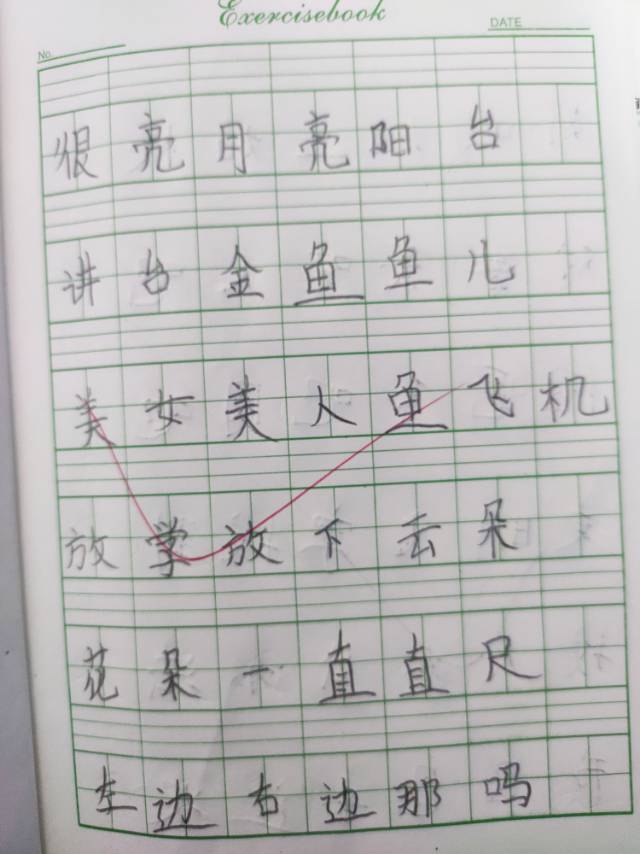 Exercisebook
No.
DATE
很亮月亮阳台
讲台金鱼鱼儿
美女美人鱼飞机
放学放下云朵
花朵一直直尺
左边右边那吗